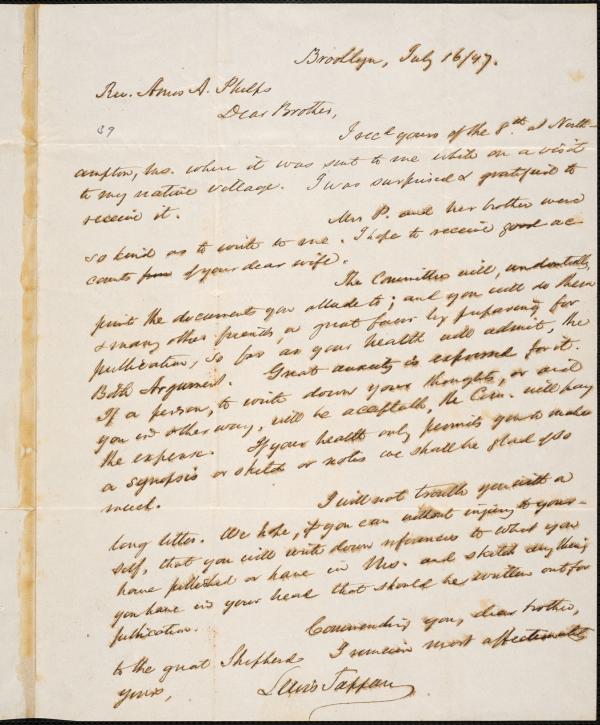 Brooklyn, July 16/47.
Rev. Amos A. Phelps
Dear Brother,
39
I recd yours of the 8th at North-
ampton, Ms. where it was sent to me while on a visit
to my native village. I was surprised & gratified to
receive it. Mrs P. and her brother were
so kind as to write to me. I hope to receive good ac
counts from of your dear wife.
The Committee will, undoubtedly,
print the documents you allude to; and you will do them
& many other friends, a great favor by preparing for
publication, so far as your health will admit, the
Bible Argument. Great anxiety is expressed for it.
If a person, to write down your thoughts, or aid
you in other way, will be acceptable, the Com. will pay
the expense. If your health only permits you to make
a synopsis or sketch or notes we shall be glad of so
much.
I will not trouble you with a
long letter. We hope, if you can without injury to your-
self, that you will write down references to what you
have published or have in Ms. and sketch any thing
you have in your head that should be written out for
publication.
Commending you, dear brother,
to the great Shepherd I remain most affectionately
yours,
Lewis Tappan